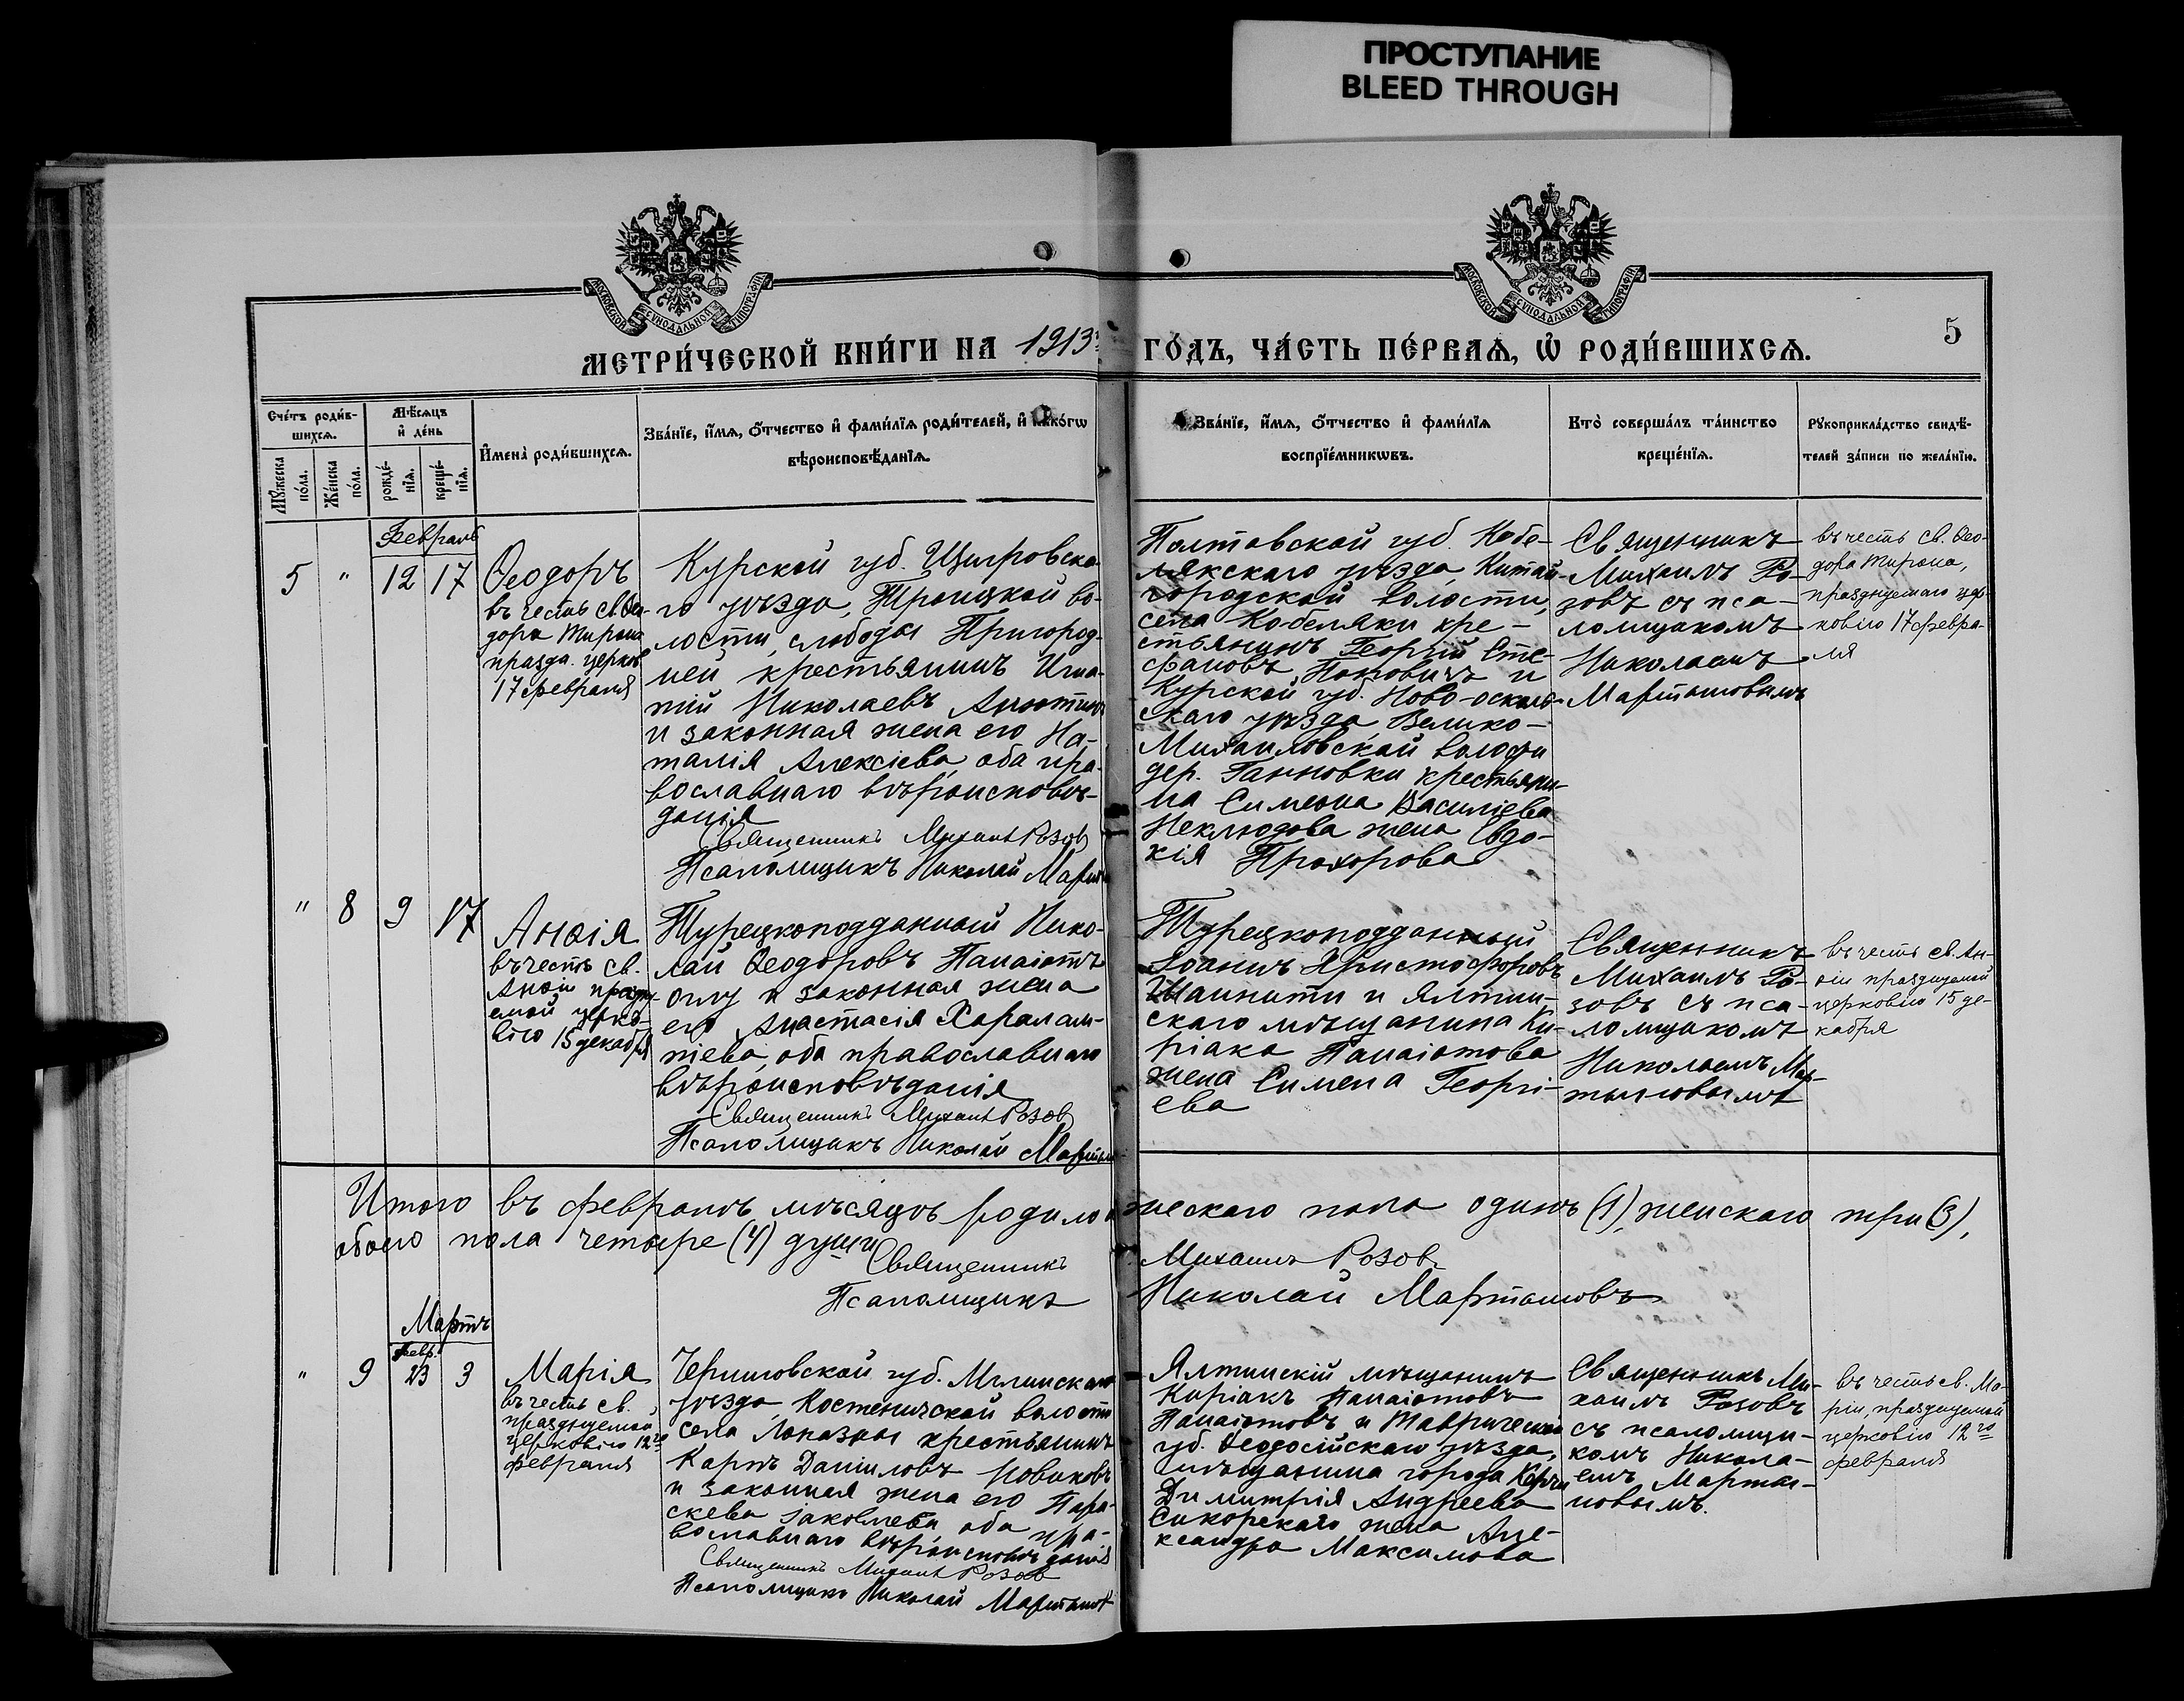 ПРОСТУПАНИЕ
BLEED THROUGH
МОСКОВСКОЙ СѴНОДАЛЬНОЙ ТИПОГРАФІИ
МОСКОВСКОЙ СѴНОДАЛЬНОЙ ТИПОГРАФІИ
5
МЕТРИ́ЧЕСКОЙ КНИ́ГИ НА 1913 ГО́ДЪ, ЧА́СТЬ ПЕ́РВАѦ, Ѡ҆ РОДИ́ВШИХСѦ.
Сче́тъ роди́в-
шихсѧ.
Мѣ́сѧцъ
и҆ де́нь
Мꙋ́жеска
по́ла.
Же́нска
по́ла.
рожде́-
нїѧ.
креще́-
нїѧ.
И҆мена̀ роди́вшихсѧ.
Зва́нїе, и҆́мѧ, ѻ҆́тчество и҆ фами́лїѧ роди́телей, и҆ како́гѡ
вѣроисповѣ́данїѧ.
Зва́нїе, и҆́мѧ, ѻ҆́тчество и҆ фами́лїѧ
воспрїе́мникѡвъ.
Кто̀ соверша́лъ та́инство
креще́нїѧ.
Рꙋкоприкла́дство свидѣ́-
телей за́писи по жела́нїю.
Февраль
5 " 12 17
Ѳеодоръ
въ честь св. Ѳео-
дора Тирона
празд. церков
17 февраля
Курской губ. Щигровска-
го уѣзда, Троицкой во-
лости, слободы Пригород-
ней крестьянинъ Игна-
тій Николаевъ Анютинъ
и законная жена его На-
талія Алексіева, оба пра-
вославнаго вѣроисповѣ-
данія
Священникъ Михаилъ Розовъ
Псаломщикъ Николай Март
Полтавской губ. Кобе-
лякскаго уѣзда, Китай-
городской волости,
села Кобеляки кре-
стьянинъ Георгій Сте-
фановъ Поповичъ и
Курской губ. Ново-осколь-
скаго уѣзда, Велико-
Михайловской волости
дер. Ганновки крестьяни-
на Симеона Василіева
Неклюдова жена Евдо-
кія Прохорова
Священникъ
Михаилъ Ро-
зовъ съ пса-
ломщикомъ
Николаемъ
Мартыновымъ
въ честь св. Ѳео-
дора Тирона,
празднуемаго цер-
ковію 17 февра-
ля
" 8 9 17
Анѳія
въ честь св.
Анѳіи праздну-
емой церко-
вію 15 декабря
Турецкоподданный Нико-
лай Ѳеодоровъ Панаіотъ
Оглу и законная жена
его Анастасія Харалам-
піева, оба православнаго
вѣроисповѣданія
Священникъ Михаилъ Розовъ
Псаломщикъ Николай Мартын
Турецкоподданный
Іоаннъ Христофоровъ
и Ялтин-
скаго мѣщанина Ки-
ріака Панаіотова
жена Симела Георгі-
ева
Священникъ
Михаилъ Ро-
зовъ съ пса-
ломщикомъ
Николаемъ Мар-
тыновымъ
въ честь св. Ан-
ѳіи празднуемой
церковію 15 де-
кабря
Итого въ февралѣ мѣсяцѣ родилось мужескаго пола одинъ (1), женскаго три (3),
обоего пола четыре (4) души
Священникъ Михаилъ Розовъ
Псаломщикъ Николай Мартыновъ
Мартъ
Февр.
" 9 23 3
Марія
въ честь св.,
празднуемой
церковію 12го
февраля
Черниговской губ. Мглинскаго
уѣзда, Костеничской волости
села Лопазны крестьянинъ
Карпъ Даніиловъ Новиковъ
и законная жена его Пара-
скева Іаковлева, оба пра-
вославнаго вѣроисповѣданія
Священникъ Михаилъ Розовъ
Псаломщикъ Николай Мартынов
Ялтинскій мѣщанинъ
Киріакъ Панаіотовъ
Панаіотовъ и Таврической
губ. Ѳеодосійскаго уѣзда,
мѣщанина города Керчи
Димитрія Андреева
Сикорскаго жена Але-
ксандра Максимова
Священникъ Ми-
хаилъ Розовъ
съ псаломщи-
комъ Никола-
емъ Марты-
новымъ.
въ честь св. Ма-
ріи, празднуемой
церковію 12го
февраля